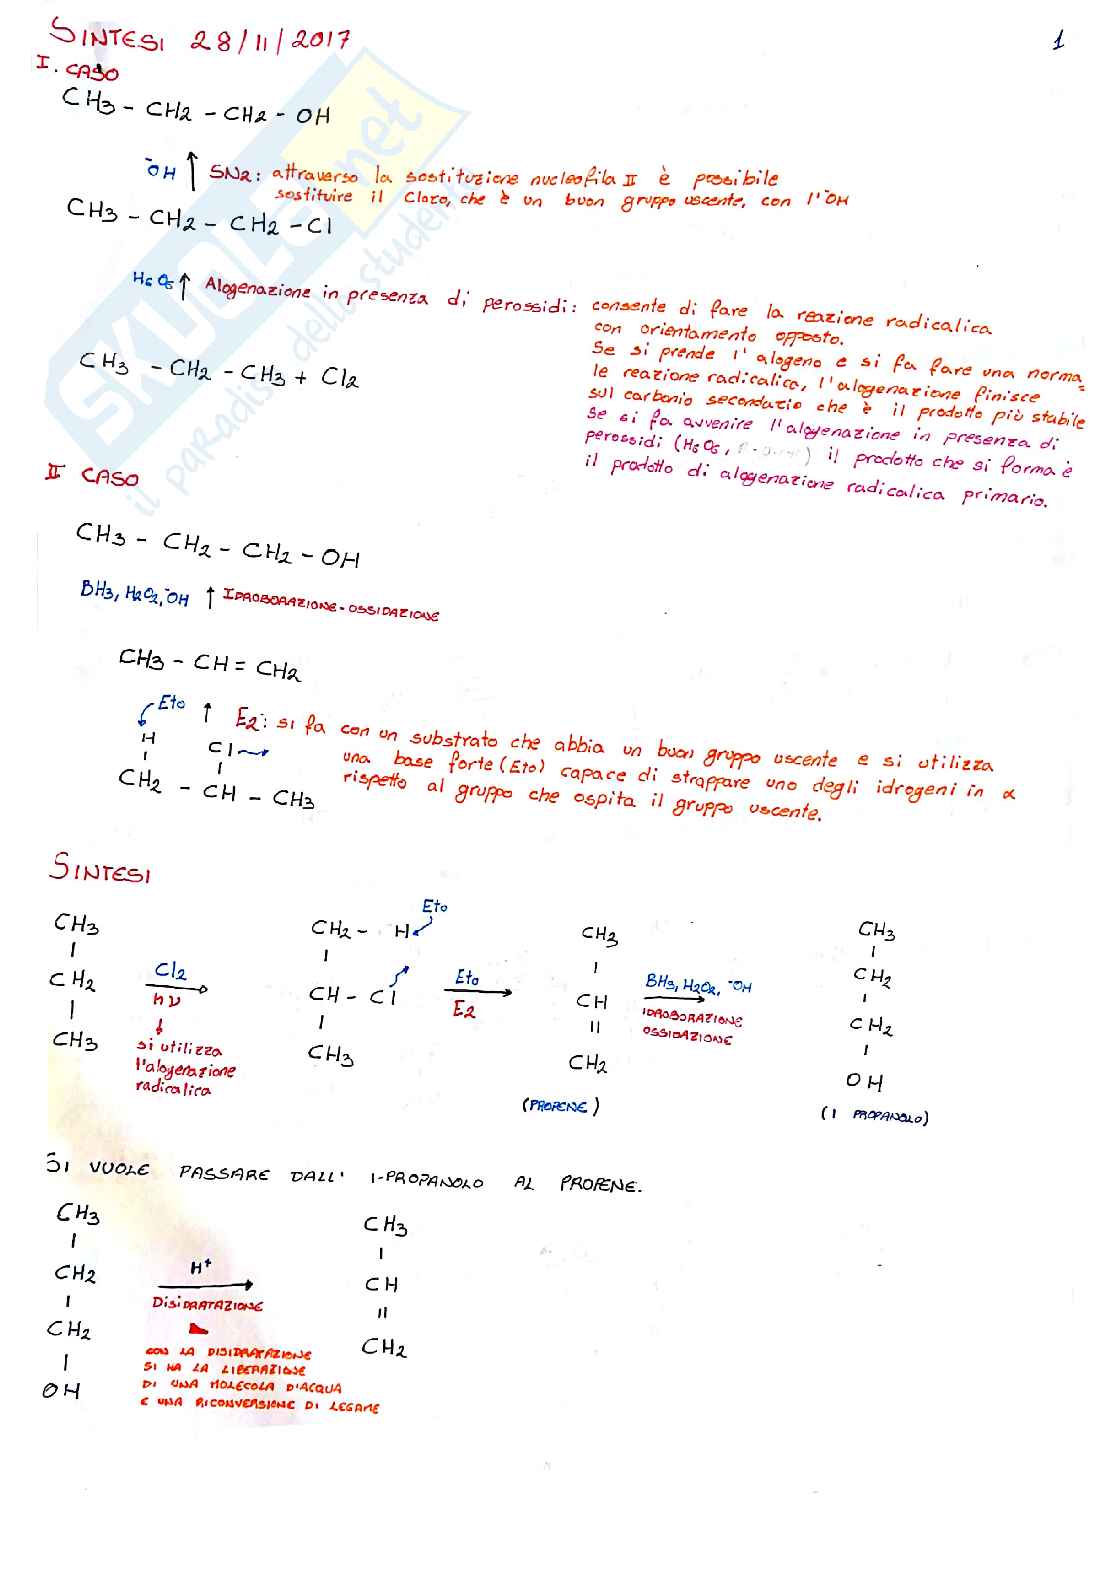 SINTESI 28/11/2017
1
I. CASO
CH3 - CH2 - CH2 - OH
-OH ↑ SN2: attraverso la sostituzione nucleofila II è possibile
sostituire il Cloro, che è un buon gruppo uscente, con l'-OH
CH3 - CH2 - CH2 - Cl
↑ Alogenazione in presenza di perossidi: consente di fare la reazione radicalica
con orientamento opposto.
CH3 - CH2 - CH3 + Cl2
Se si prende l'alogeno e si fa fare una norma
le reazione radicalica, l'alogenazione finisce
sul carbonio secondario che è il prodotto più stabile
Se si fa avvenire l'alogenazione in presenza di
perossidi (H6O6, ) il prodotto che si forma è
il prodotto di alogenazione radicalica primario.
II CASO
CH3 - CH2 - CH2 - OH
BH3, H2O2, -OH ↑ IDROBORAZIONE-OSSIDAZIONE
CH3 - CH = CH2
Eto ↑ E2: si fa con un substrato che abbia un buon gruppo uscente e si utilizza
una base forte (Eto) capace di strappare uno degli idrogeni in α
rispetto al gruppo che ospita il gruppo uscente.
H Cl
CH2 - CH - CH3
SINTESI
CH3
CH2
CH3
Cl2
hν
si utilizza
l'alogenazione
radicalica
CH2 - H
Eto
CH - Cl
CH3
Eto
E2
CH3
CH
=
CH2
(PROPENE)
BH3, H2O2, -OH
IDROBORAZIONE
OSSIDAZIONE
CH3
CH2
CH2
OH
(1 PROPANOLO)
SI VUOLE PASSARE DALL' 1-PROPANOLO AL PROPENE.
CH3
CH2
CH2
OH
H+
DISIDRATAZIONE
CON LA DISIDRATAZIONE
SI HA LA LIBERAZIONE
DI UNA MOLECOLA D'ACQUA
E UNA RICONVERSIONE DI LEGAME
CH3
CH
=
CH2
SKUOLA.net
il paradiso dello studente